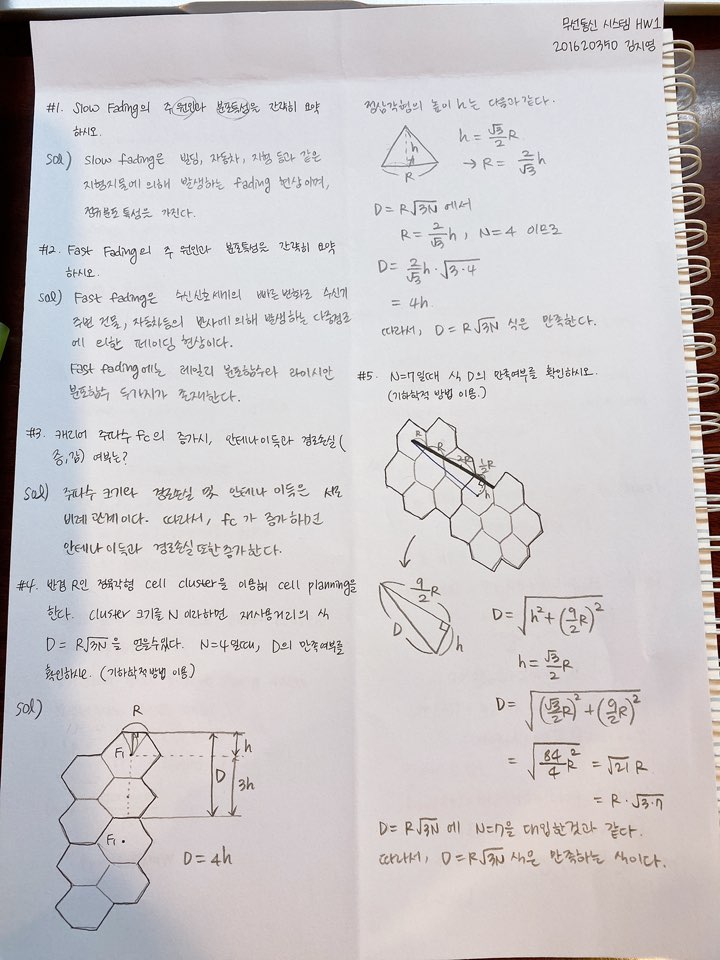 무선통신 시스템 HW1
201620350 김지영
#1. Slow Fading의 주 원인과 분포특성을 간략히 요약
하시오.
sol) Slow fading은 빌딩, 자동차, 지형 등과 같은
지형지물에 의해 발생하는 fading 현상이며,
정규분포 특성을 가진다.
#2. Fast Fading의 주 원인과 분포특성을 간략히 요약
하시오.
sol) Fast fading은 수신신호세기의 빠른 변화로 수신기
주변 건물, 자동차등의 반사에 의해 발생하는 다중경로
에 의한 페이딩 현상이다.
Fast fading에는 레일리 분포함수와 라이시안
분포함수 두가지가 존재한다.
#3. 캐리어 주파수 fc의 증가시, 안테나이득과 경로손실(
증,감) 여부는?
sol) 주파수 크기와 경로손실 및 안테나 이득은 서로
비례 관계이다. 따라서, fc가 증가하면
안테나이득과 경로손실 또한 증가한다.
#4. 반경 R인 정육각형 cell cluster을 이용해 cell planning을
한다. cluster 크기를 N 이라하면 재사용거리의 식
D = R√3N 을 얻을수있다. N=4일때, D의 만족여부를
확인하시오. (기하학적방법 이용)
sol)
R
F₁
h
D
3h
F₁
D = 4h
정삼각형의 높이 h는 다음과 같다.
h
R
h = √3/2 R
→ R = 2/√3 h
D = R√3N 에서
R = 2/√3 h, N=4 이므로
D = 2/√3 h · √3·4
= 4h.
따라서, D = R√3N 식은 만족한다.
#5. N=7일때 식 D의 만족여부를 확인하시오.
(기하학적 방법 이용.)
R
2R
1/2 R
h
9/2 R
D
h
D = √h² + (9/2 R)²
h = √3/2 R
D = √(√3/2 R)² + (9/2 R)²
= √84/4 R² = √21 R
= R · √3·7
D = R√3N 에 N=7을 대입한것과 같다.
따라서, D = R√3N 식은 만족하는 식이다.